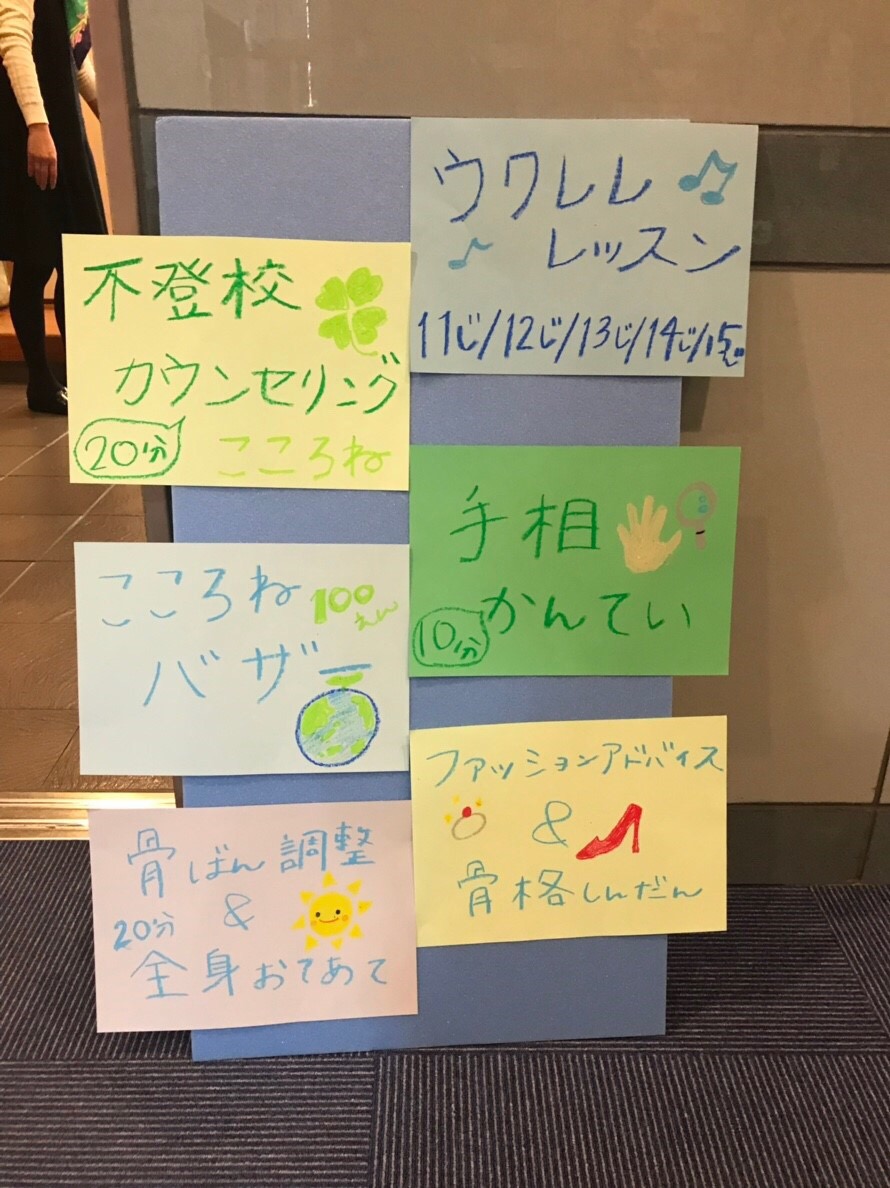 不登校
カウンセリング
20分
こころね
こころね 100えん
バザー
骨ばん調整
20分 &
全身おてあて
ウクレレ
レッスン
11じ/12じ/13じ/14じ/15じ
手相
10分 かんてい
ファッションアドバイス
&
骨格しんだん